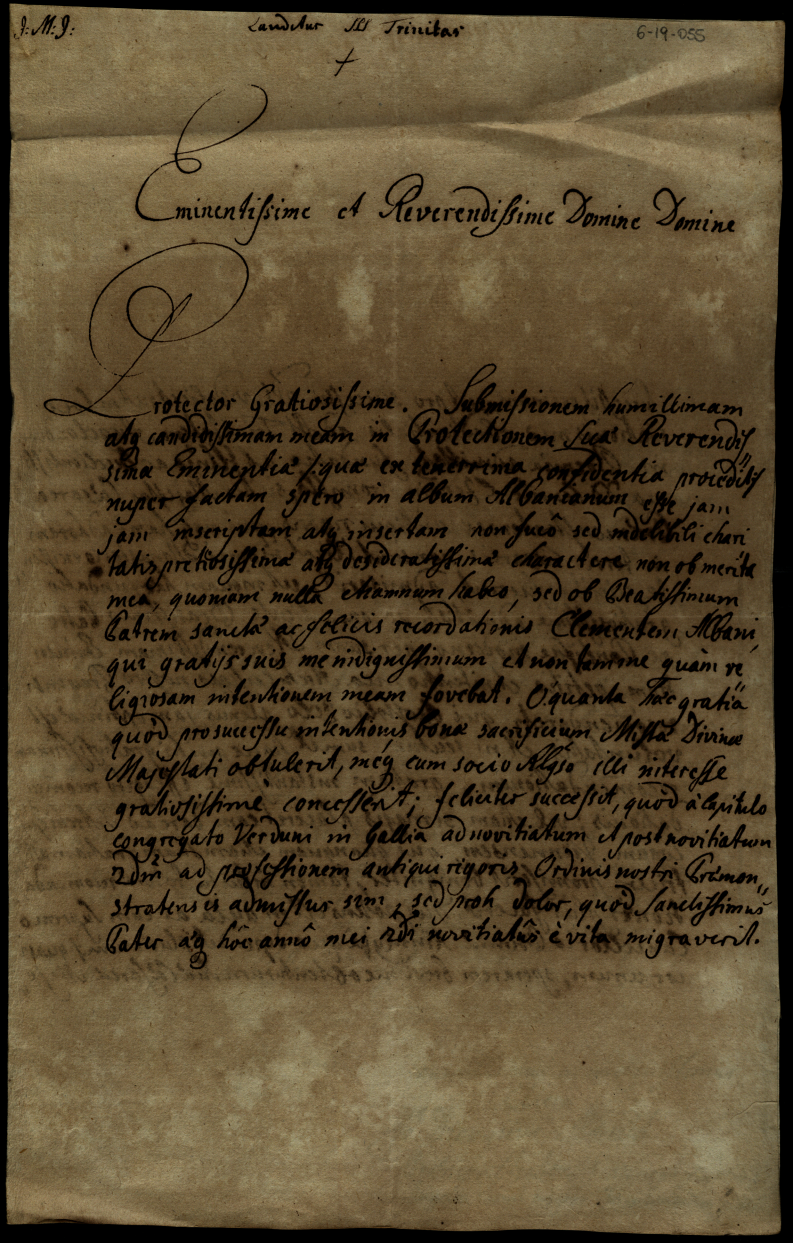 J: M: J:
Laudetur SSS Trinitas
6-19-055
Eminentissime et Reverendissime Domine Domine
Protector Gratiosissime. Submissionem humillimam
atq candidissimam meam in Protectionem Suæ Reverendis
simæ Eminentiæ /: quæ ex tenerrima confidentia
nuper factam spero in album Albaneanum esse jam
jam inscriptam atq insertam non sucô sed indelibili chari
tatis pretiosissimæ atq desideratissimæ charactere non ob merita
mea, quoniam nulla etiamnum habeo, sed ob Beatissimum
Patrem sanctæ ac felicis recordationis Clementem Albani,
qui gratijs suis me indignissimum et non tam me quàm re
ligiosam intentionem meam fovebat. O quanta hæc gratia
quod pro successu intentionis bonæ sacrificium Missæ Divinæ
Majestati obtulerit, meq cum socio illi interesse
gratiosissimè concesserit; feliciter successit, quòd à Capitulo
congregato Verduni in Gallia ad novitiatum et post novitiatum
2dm ad professionem antiqui rigoris Ordinis nostri Præmon„
stratensis admissus sim, sed proh dolor, quòd Sanctissimus
Pater hôc annô mei 2di novitiatûs è vita migraverit.